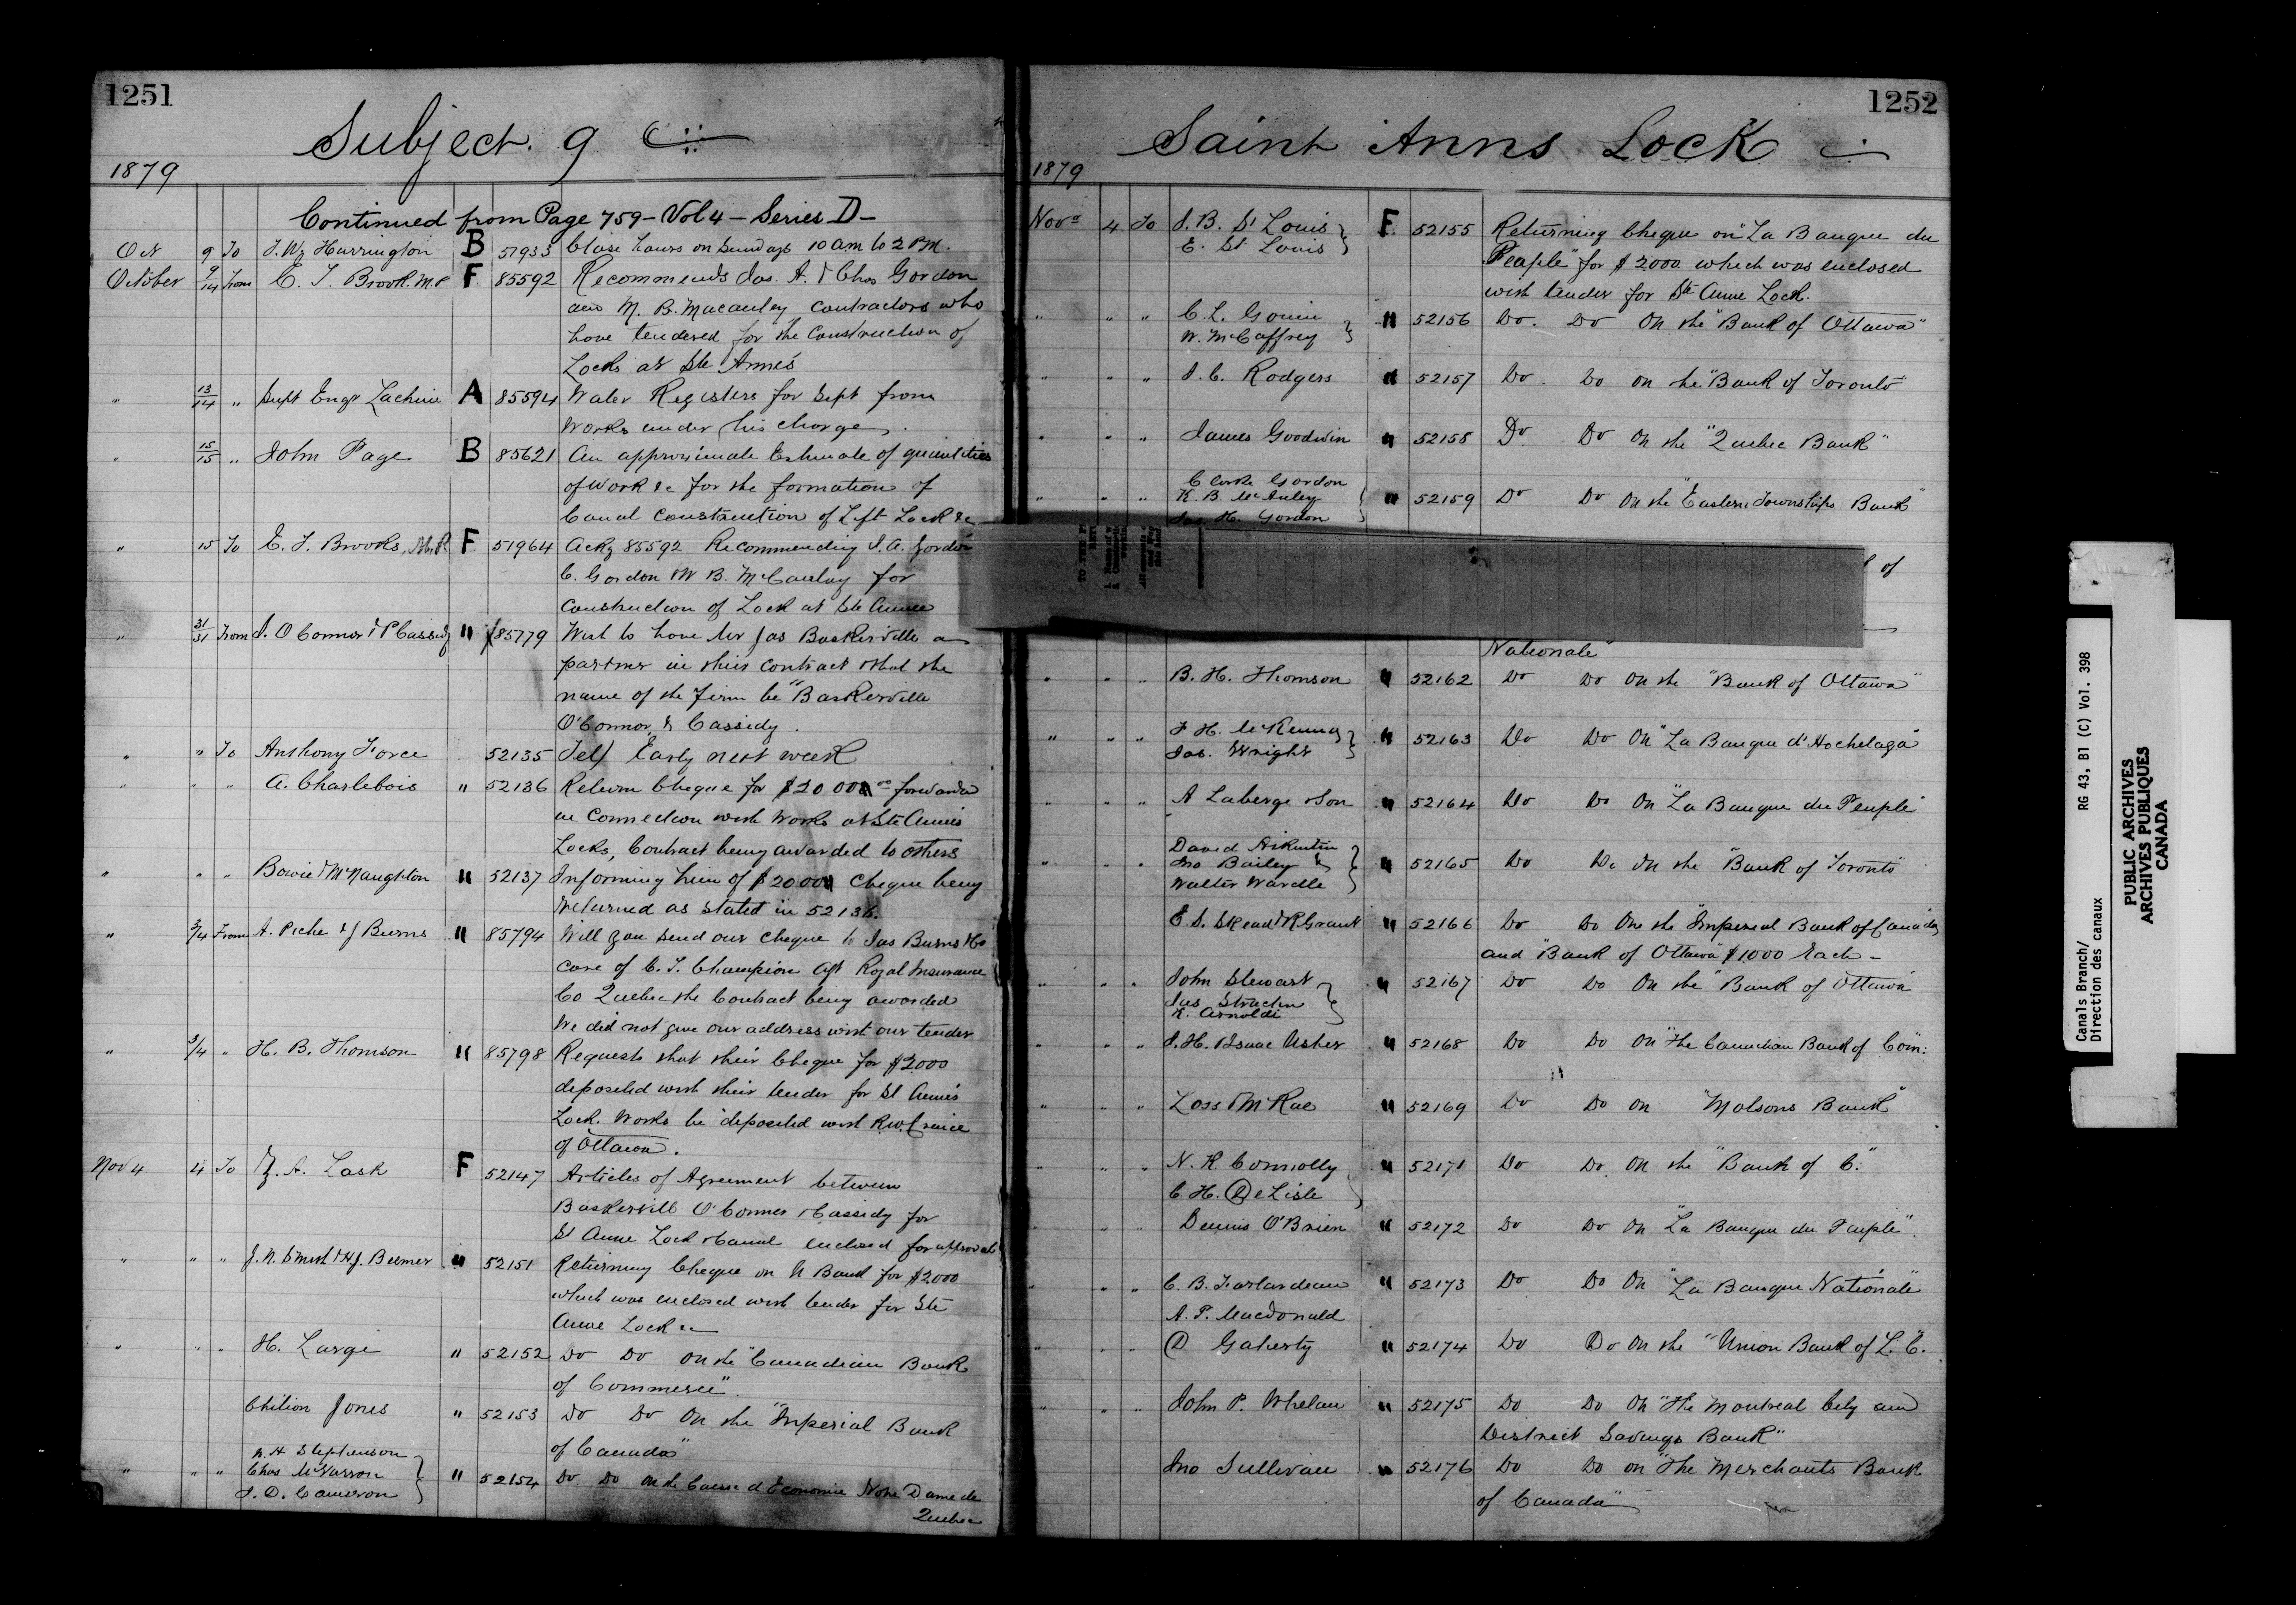 1251
Subject. 9
1879
Continued from Page 759 - Vol 4 - Series D -
Oct 9 To J. W. Harrington B 51933 Close hours on Sundays 10 am to 2 P.M.
October 9/14 From E. T. Brook. M.P F. 85592 Recommends Jas. A. & Chas Gordon
and M. B. Macauley Contractors who
have tendered for the Construction of
Locks at Ste Anne's
" 13/14 " Supt Engr Lachine A 85594 Water Registers for Sept from
Works under his charge.
" 15/15 " John Page B 85621 An approximate Estimate of quantities
of Work &c for the formation of
Canal Construction of Lift Lock &c
" 15 To E. T. Brooks, M.P. F. 51964 Ackg 85592 Recommending J. A. Gordon
C. Gordon & W B. McCauley for
Construction of Lock at Ste Anne
" 31/31 From J. O'Connor & P Cassidy " 85779 Wish to have Mr Jas Baskerville as
partner in their contract & that the
name of the firm be "Baskerville
O'Connor, & Cassidy.
" " To Anthony Force 52135 Tel/ Early next week
" " " A. Charlebois " 52136 Return Cheque for $2000 forwarded
in Connection with Works at Ste Anne's
Locks, Contract being awarded to others
" " " Bowie & McNaughton " 52137 Informing him of $2000 Cheque being
returned as stated in 52136.
" 3/4 From A. Piche & J Burns " 85794 Will you send our cheque to Jas Burns
care of C. T. Champion Agt Royal Insurance
Co Quebec the Contract being awarded
We did not give our address with our tender
" 3/4 " H. B. Thomson " 85798 Requests that their Cheque for $2000
deposited with their tender for St Anne's
Lock. Works be deposited with R.W. Cruice
of Ottawa.
Nov 4 4 To Z. A. Lash F 52147 Articles of Agreement between
Baskervill O'Connor & Cassidy for
St Anne Lock & Canal enclosed for approval
" " " J. N. Smith & H J. Beemer " 52151 Returning Cheque on U Bank for $2000
which was enclosed with tender for Ste
Anne Lock &c
" " " H. Large " 52152 Do Do on the "Canadian Bank
of Commerce".
Chilion Jones " 52153 Do Do On the "Imperial Bank
of Canada"
N. H Stephenson
" " " Chas McVarron " 52154 Do Do on the Caisse d Economie Notre Dame de
J. D. Cameron
Quebec
1252
Saint Anns Lock
1879
Novr 4 To J. B. St Louis F. 52155 Returning Cheque on "La Banque du
E. St Louis
Peaple" for $2000 which was enclosed
with tender for Ste Anne Lock.
" " " C. L. Gouin " 52156 Do. Do On the "Bank of Ottawa"
W. McCaffrey
" " " J. C. Rodgers " 52157 Do. Do on the "Bank of Toronto"
" " " James Goodwin " 52158 Do Do on the "Quebec Bank"
Clark Gordon
" " " K. B. McAuley " 52159 Do Do On the "Eastern Townships Bank"
Jas. H. Gordon
of
Nationale"
" " " B. H. Thomson " 52162 Do Do on the "Bank of Ottawa"
" " " F H. McKenna " 52163 Do Do On "La Banque d'Hochelaga"
Jas. Wright
" " " A Laberge & Son " 52164 Do Do On "La Banque du Peuple"
David
" " " Jno Bailey & " 52165 Do Do On the "Bank of Toronto"
Walter Wardle
" " " E. S. Skead & R Grant " 52166 Do Do On the "Imperial Bank of Canada"
and "Bank of Ottawa" $1000 Each -
" " " John Stewart " 52167 Do Do On the "Bank of Ottawa"
Jas Strachan
K. Arnoldi
" " " J. H. & Isaac Usher " 52168 Do Do On "The Canadian Bank of Com:
" " " Loss & McRae " 52169 Do Do on "Molsons Bank"
" " " N. K Connolly " 52171 Do Do on the "Bank of C."
C. H. DeLisle
" " " Dennis O'Brien " 52172 Do Do On "La Banque du Peuple".
" " " C. B. " 52173 Do Do On "La Banque Nationale"
A. P. Macdonald
" " " D Gaherty " 52174 Do Do On the "Union Bank of L. C."
" " " John P. Whelan " 52175 Do Do On "The Montreal City and
District Savings Bank"
Jno Sullivan " 52176 Do Do on "The Merchants Bank
of Canada"
Canals Branch/
Direction des canaux
RG 43, B1 (C) Vol. 398
PUBLIC ARCHIVES
ARCHIVES PUBLIQUES
CANADA